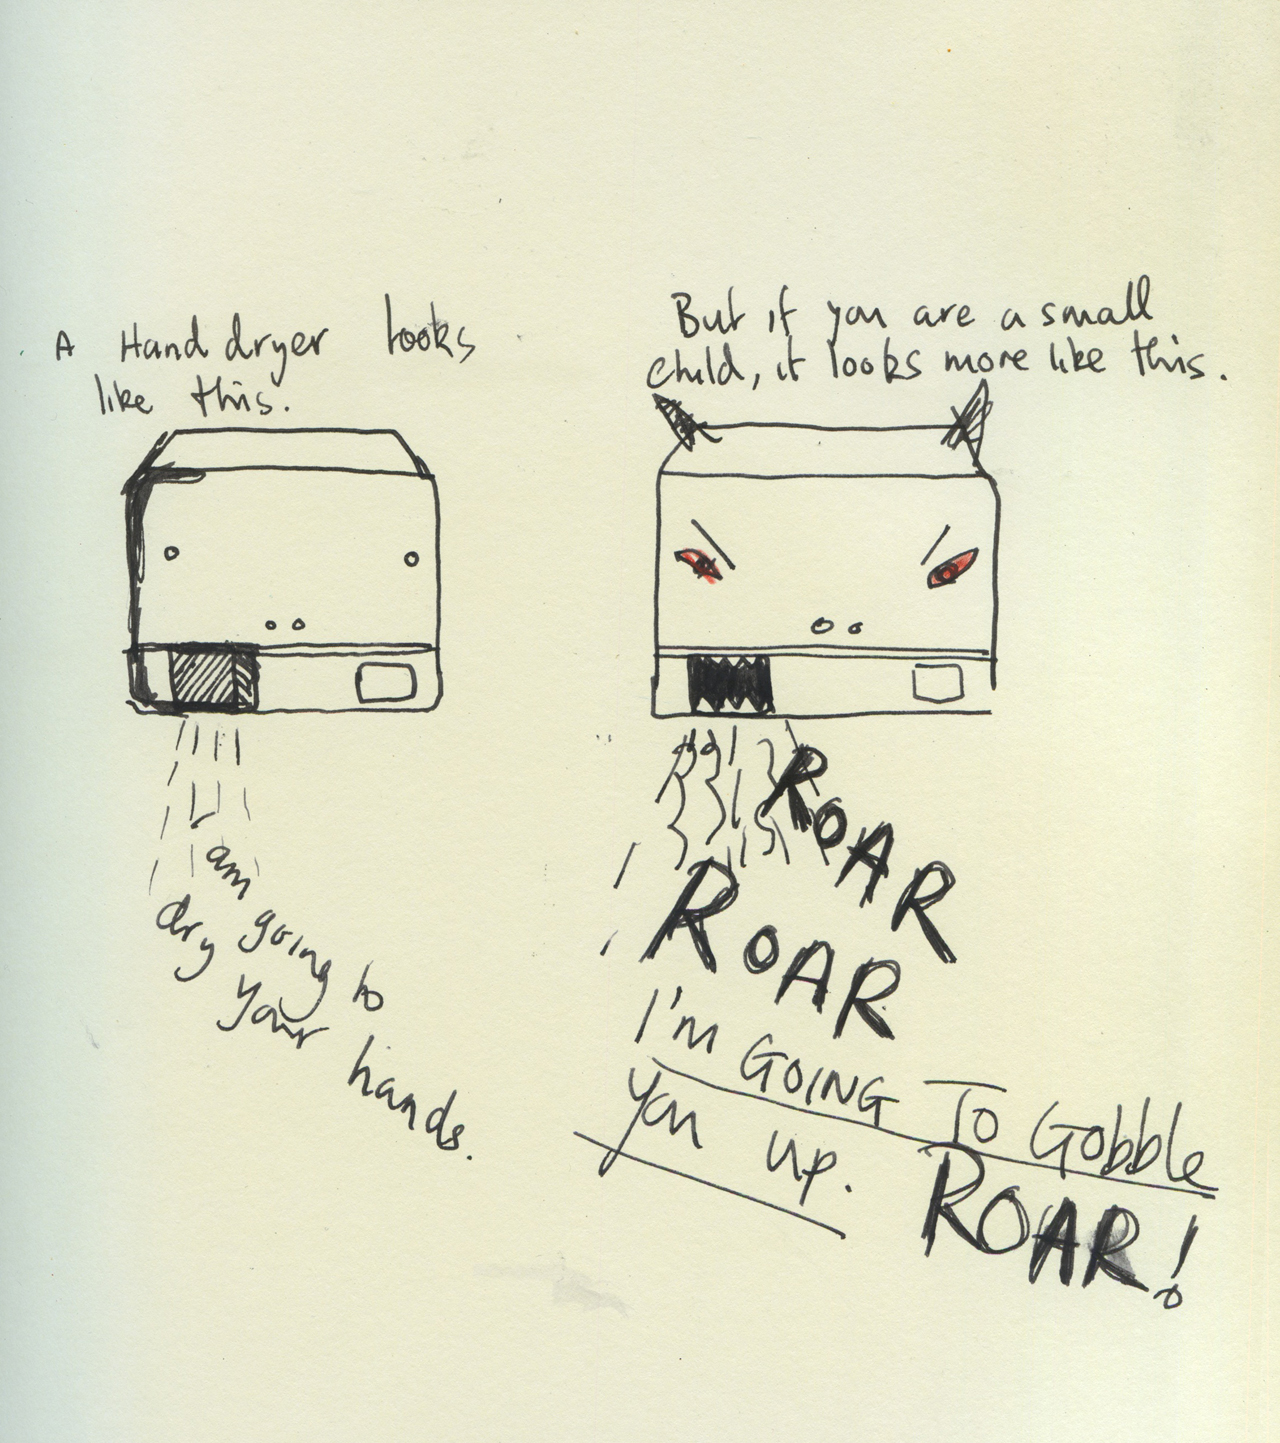 A Hand dryer looks
like this.
I am going to
dry your hands.
But if you are a small
child, it looks more like this.
ROAR
ROAR
I'm GOING TO Gobble
you up.
ROAR!